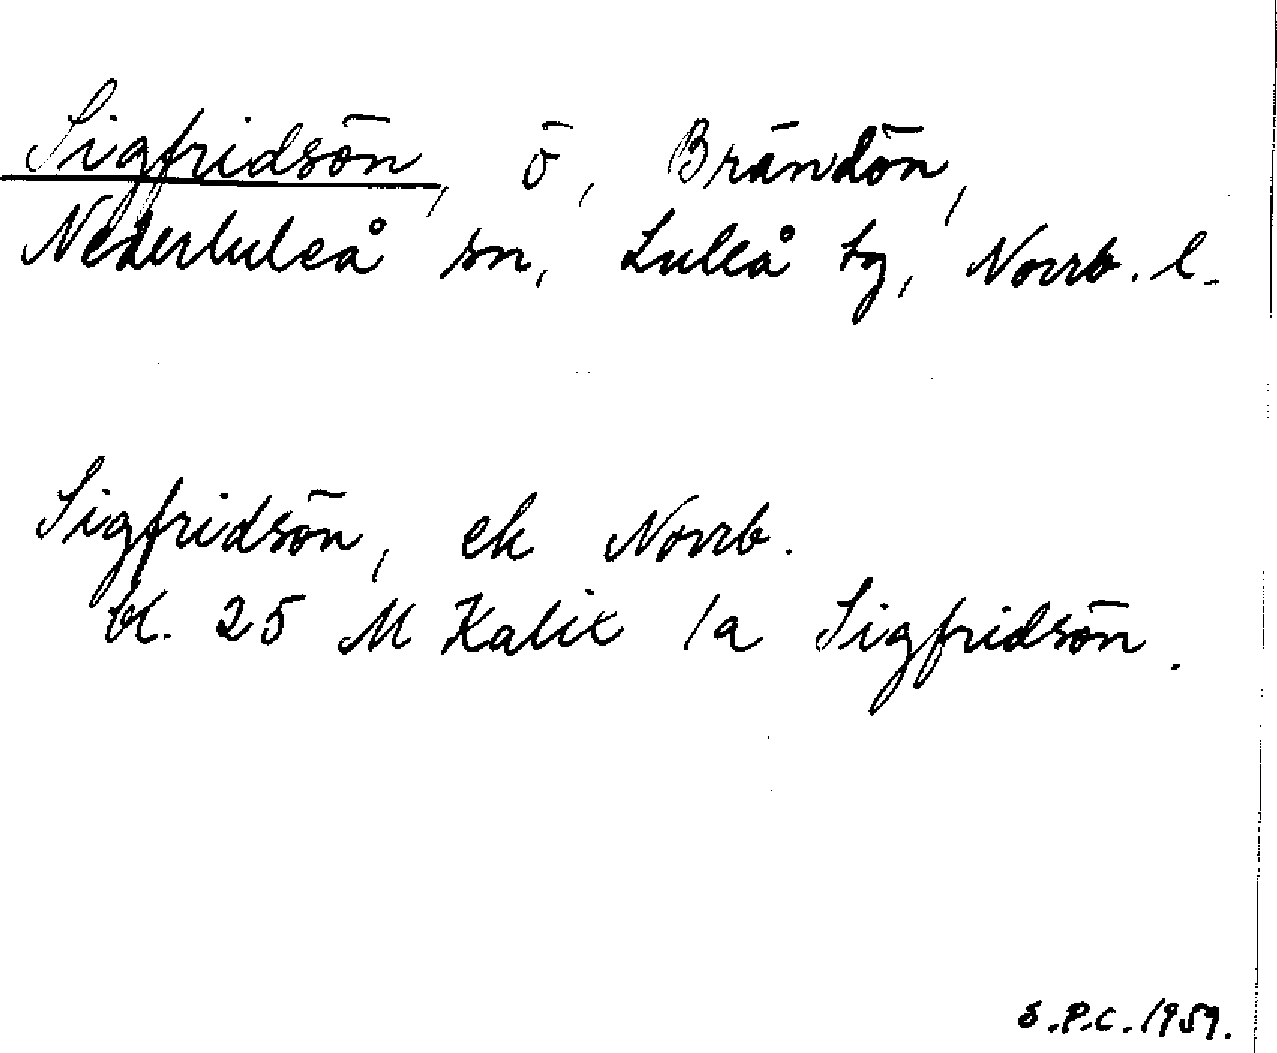 Sigfridsön, ö, Brändön,
Nederluleå sn, Luleå tg, Norrb. l.
Sigfridsön, ek Norrb.
bl. 25 M Kalix /a Sigfridsön.
S.P.C. 1959.